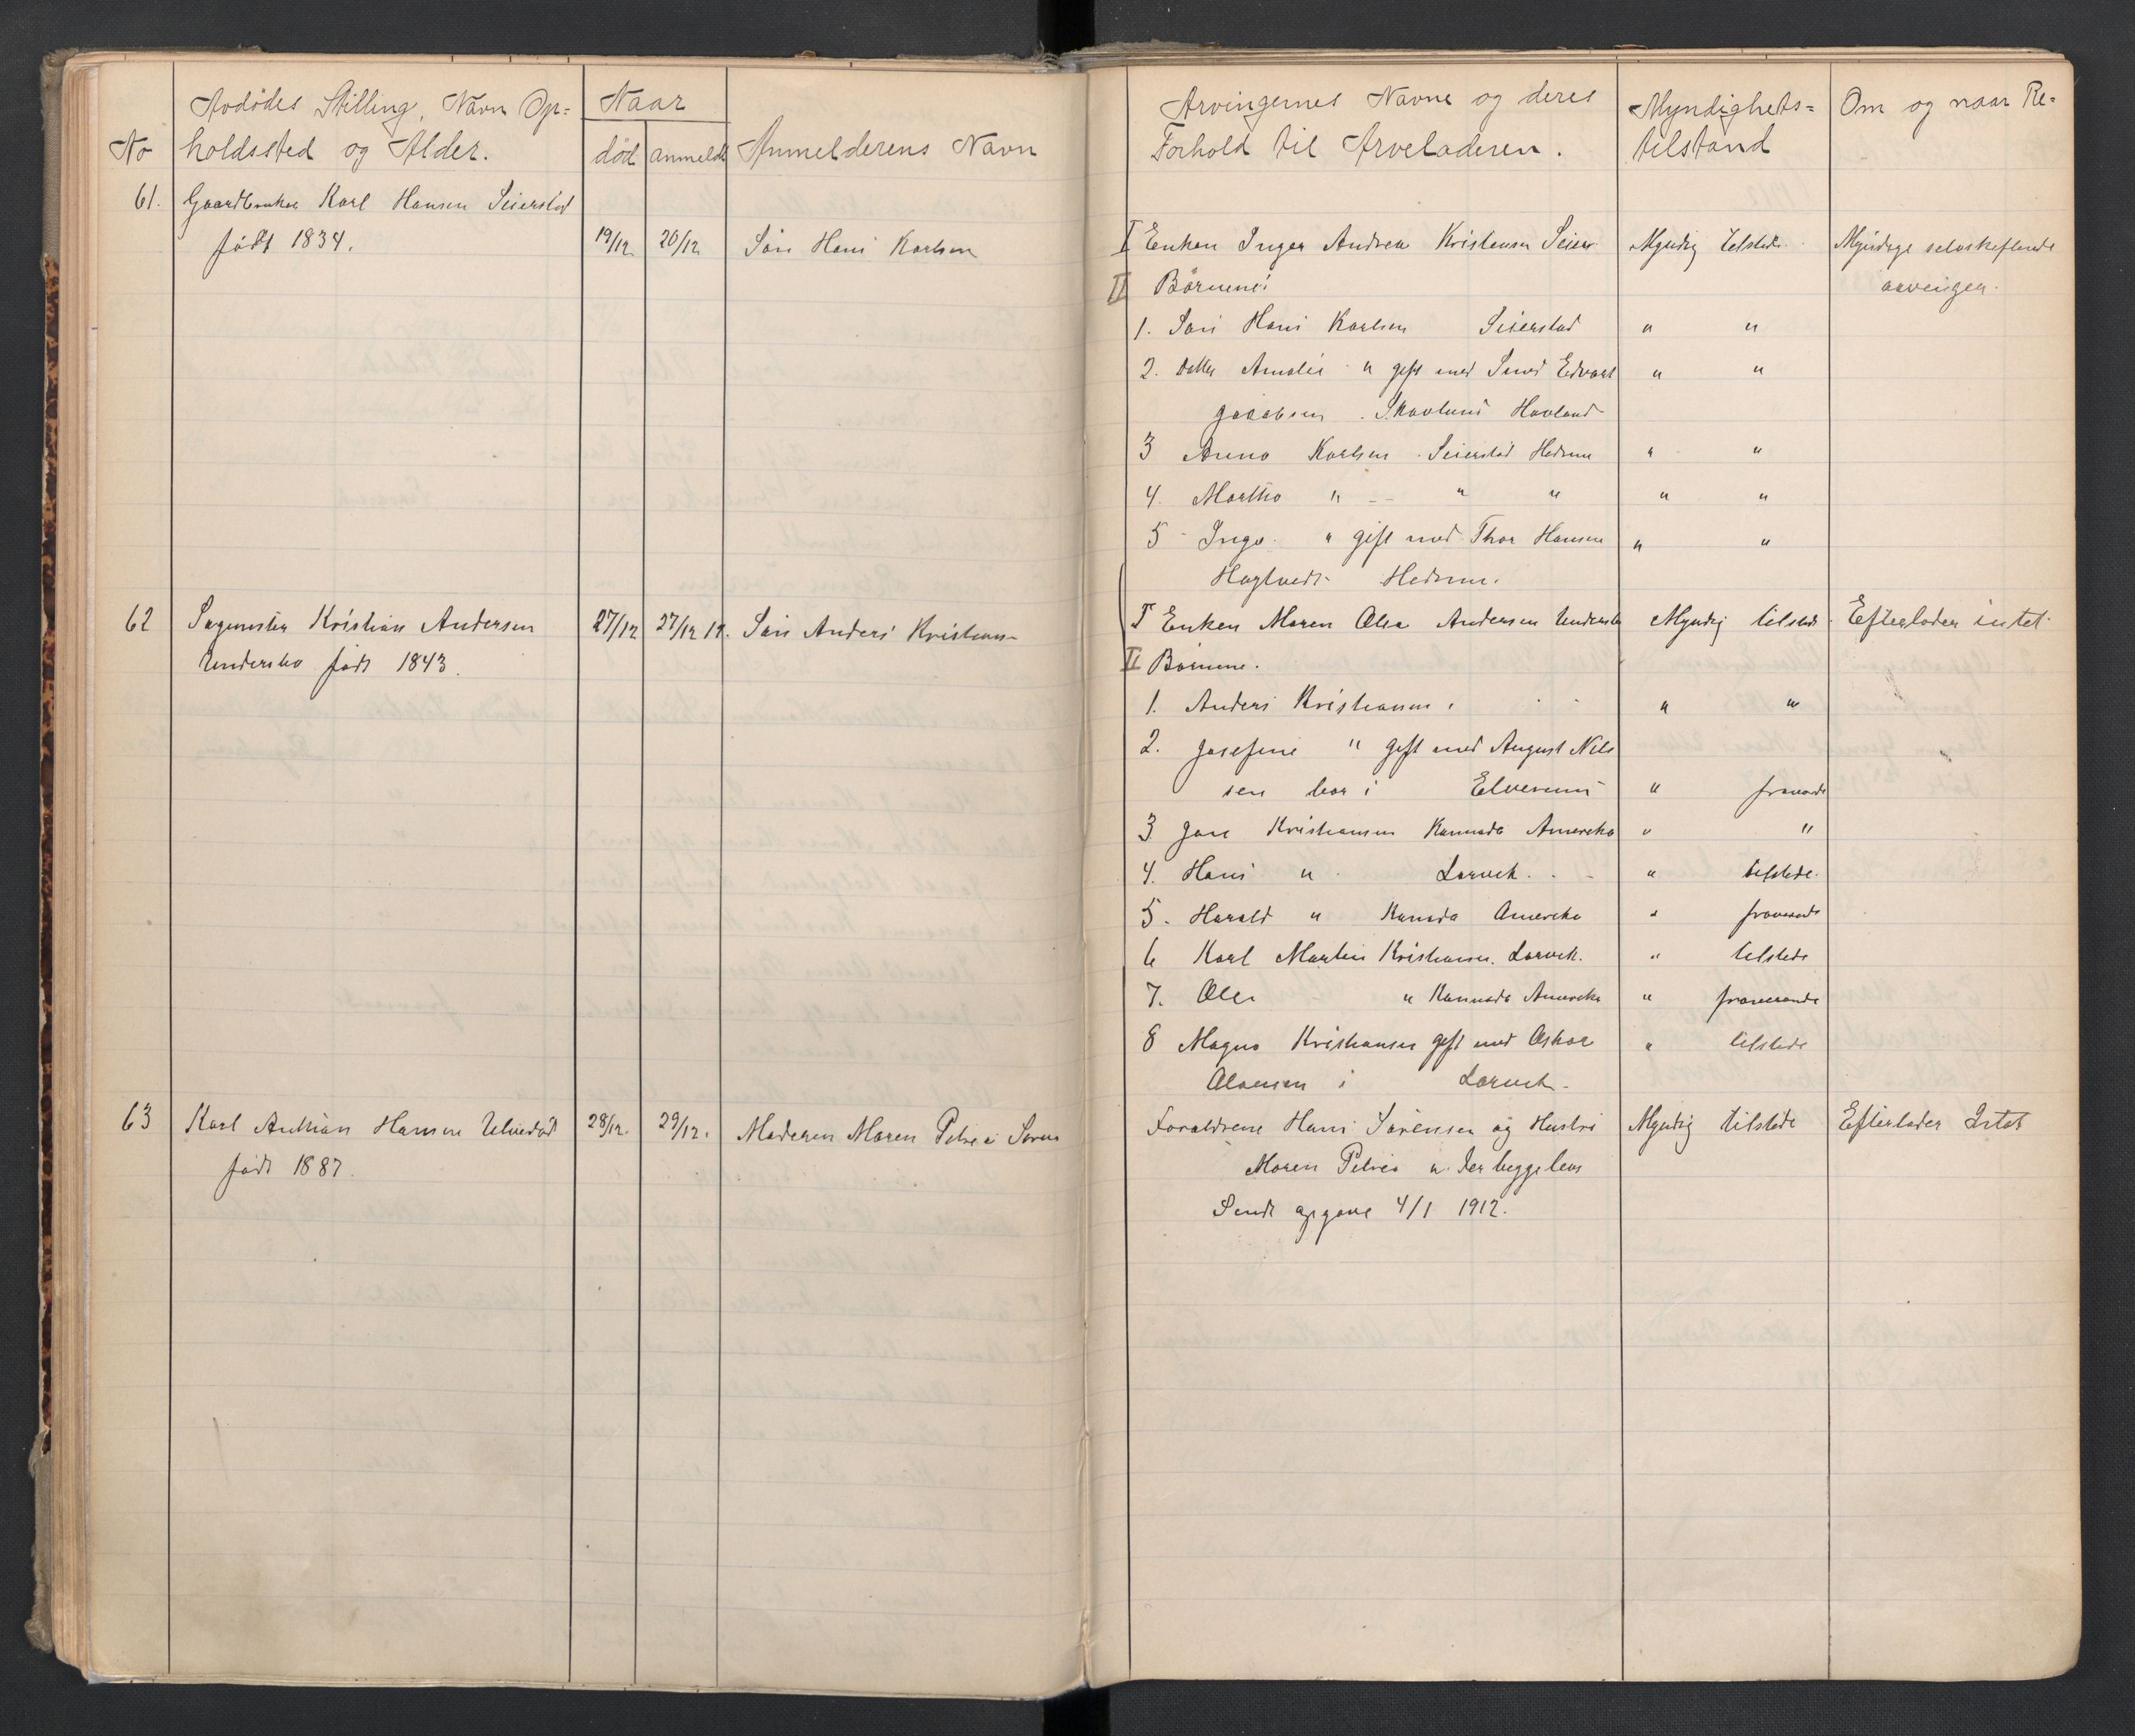 Avdödes Stilling, Navn Op=
No holdssted og Alder.
Naar
död anmeldt
Anmelderens Navn
61. Gaardbruker Karl Hansen Seierstad
födt 1834. 19/12 20/12 Sön Hans Karlsen
62 Sagmester Kristian Andersen 27/12 27/12 12. Sön Anders Kristian-
Undersbo födt 1843.
63 Karl Anthian Hansen Ulvedal 28/12. 29/12. Moderen Maren Petrea Sören
födt 1887.
Arvingernes Navne og deres
Forhold til Arveladeren.
Myndighets=
tilstand
Om og naar Re=
I Enken Inger Andrea Kristensen Seier Myndig tilstede. Myndige selvskiftende
II Börnene: arvinger.
1. Sön Hans Karlsen Seierstad " "
2. Datter Amalie " gift med Smed Edvart " "
Jacobsen. Skovlund Hovland
3 Anna Karlsen. Seierstad Hedrum " "
4. Martha " -- " " " "
5 - Inga. " gift med Thor Hansen " "
Hagtvedt Hedrum.
I Enken Maren Olea Andersen Undersbo Myndig tilstede. Efterlader intet
II Börnene.
1. Anders Kristiansen. " "
2. Josefine " gift med August Nils
sen bor i Elverum " fraværende
3 Jon Kristiansen Kannada Amerika " "
4. Hans " Larvik. " tilstede.
5. Harald " Kanada Amerika " fraværende
6 Karl Martin Kristiansen. Larvik. " tilstede
7. Ole " Kannada Amerika " fraværende
8 Magna Kristiansen gift med Oskar " tilstede
Olavesen i Larvik.
Foraldrene Hans Sörensen og Hustru Myndig tilstede Efterlader Intet
Maren Petrea
Sendt opgave 4/1 1912.